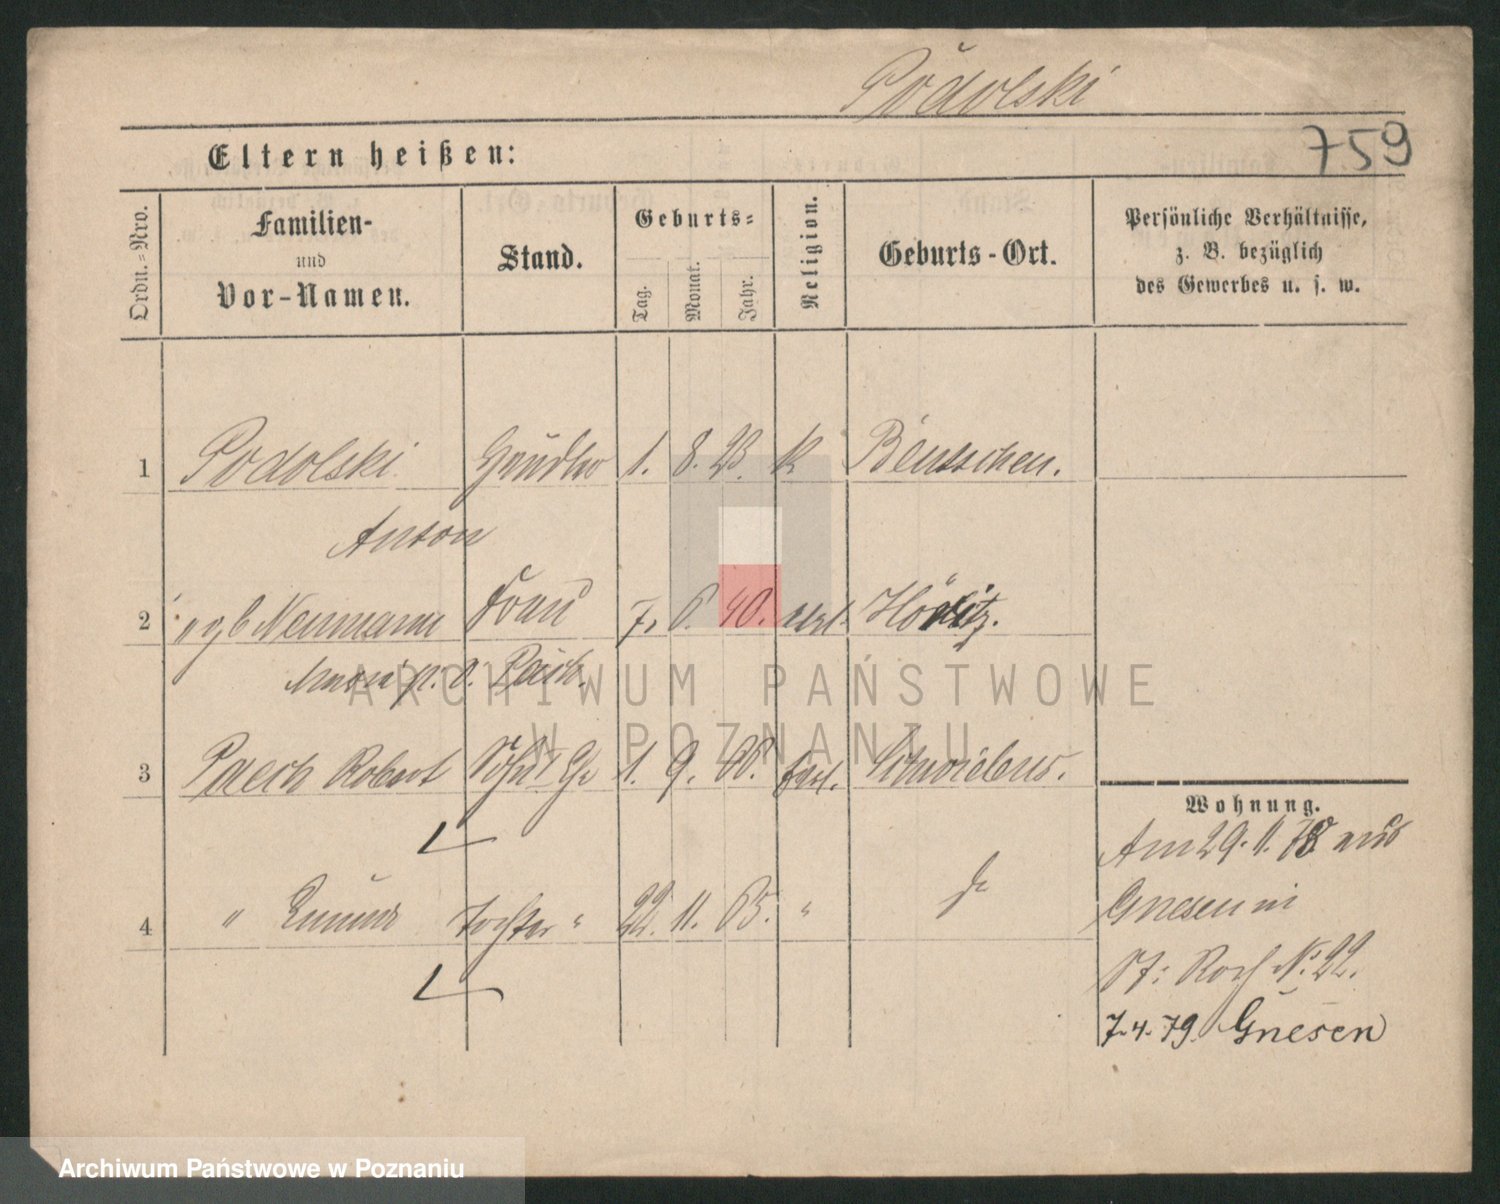 Podolski
759
Eltern heißen:
Ordn.=Nro.
Familien-
und
Vor-Namen.
Stand.
Geburts=
Tag.
Monat.
Jahr.
Religion.
Geburts-Ort.
Persönliche Verhältnisse,
z. B. bezüglich
des Gewerbes u. s. w.
1 Podolski 1. 8. 23. k Bentschen.
Anton
2 Neumann Frau 7. 6. 40.
3 Paech Robert 1. 9. Schwiebus.
4 " Tochter " 22. 11. 65. "
Wohnung.
Am 29. 11. 78 aus
Gnesen in
St: Roch No 22.
7.4.79. Gnesen
ARCHIWUM PAŃSTWOWE
W POZNANIU
Archiwum Państwowe w Poznaniu